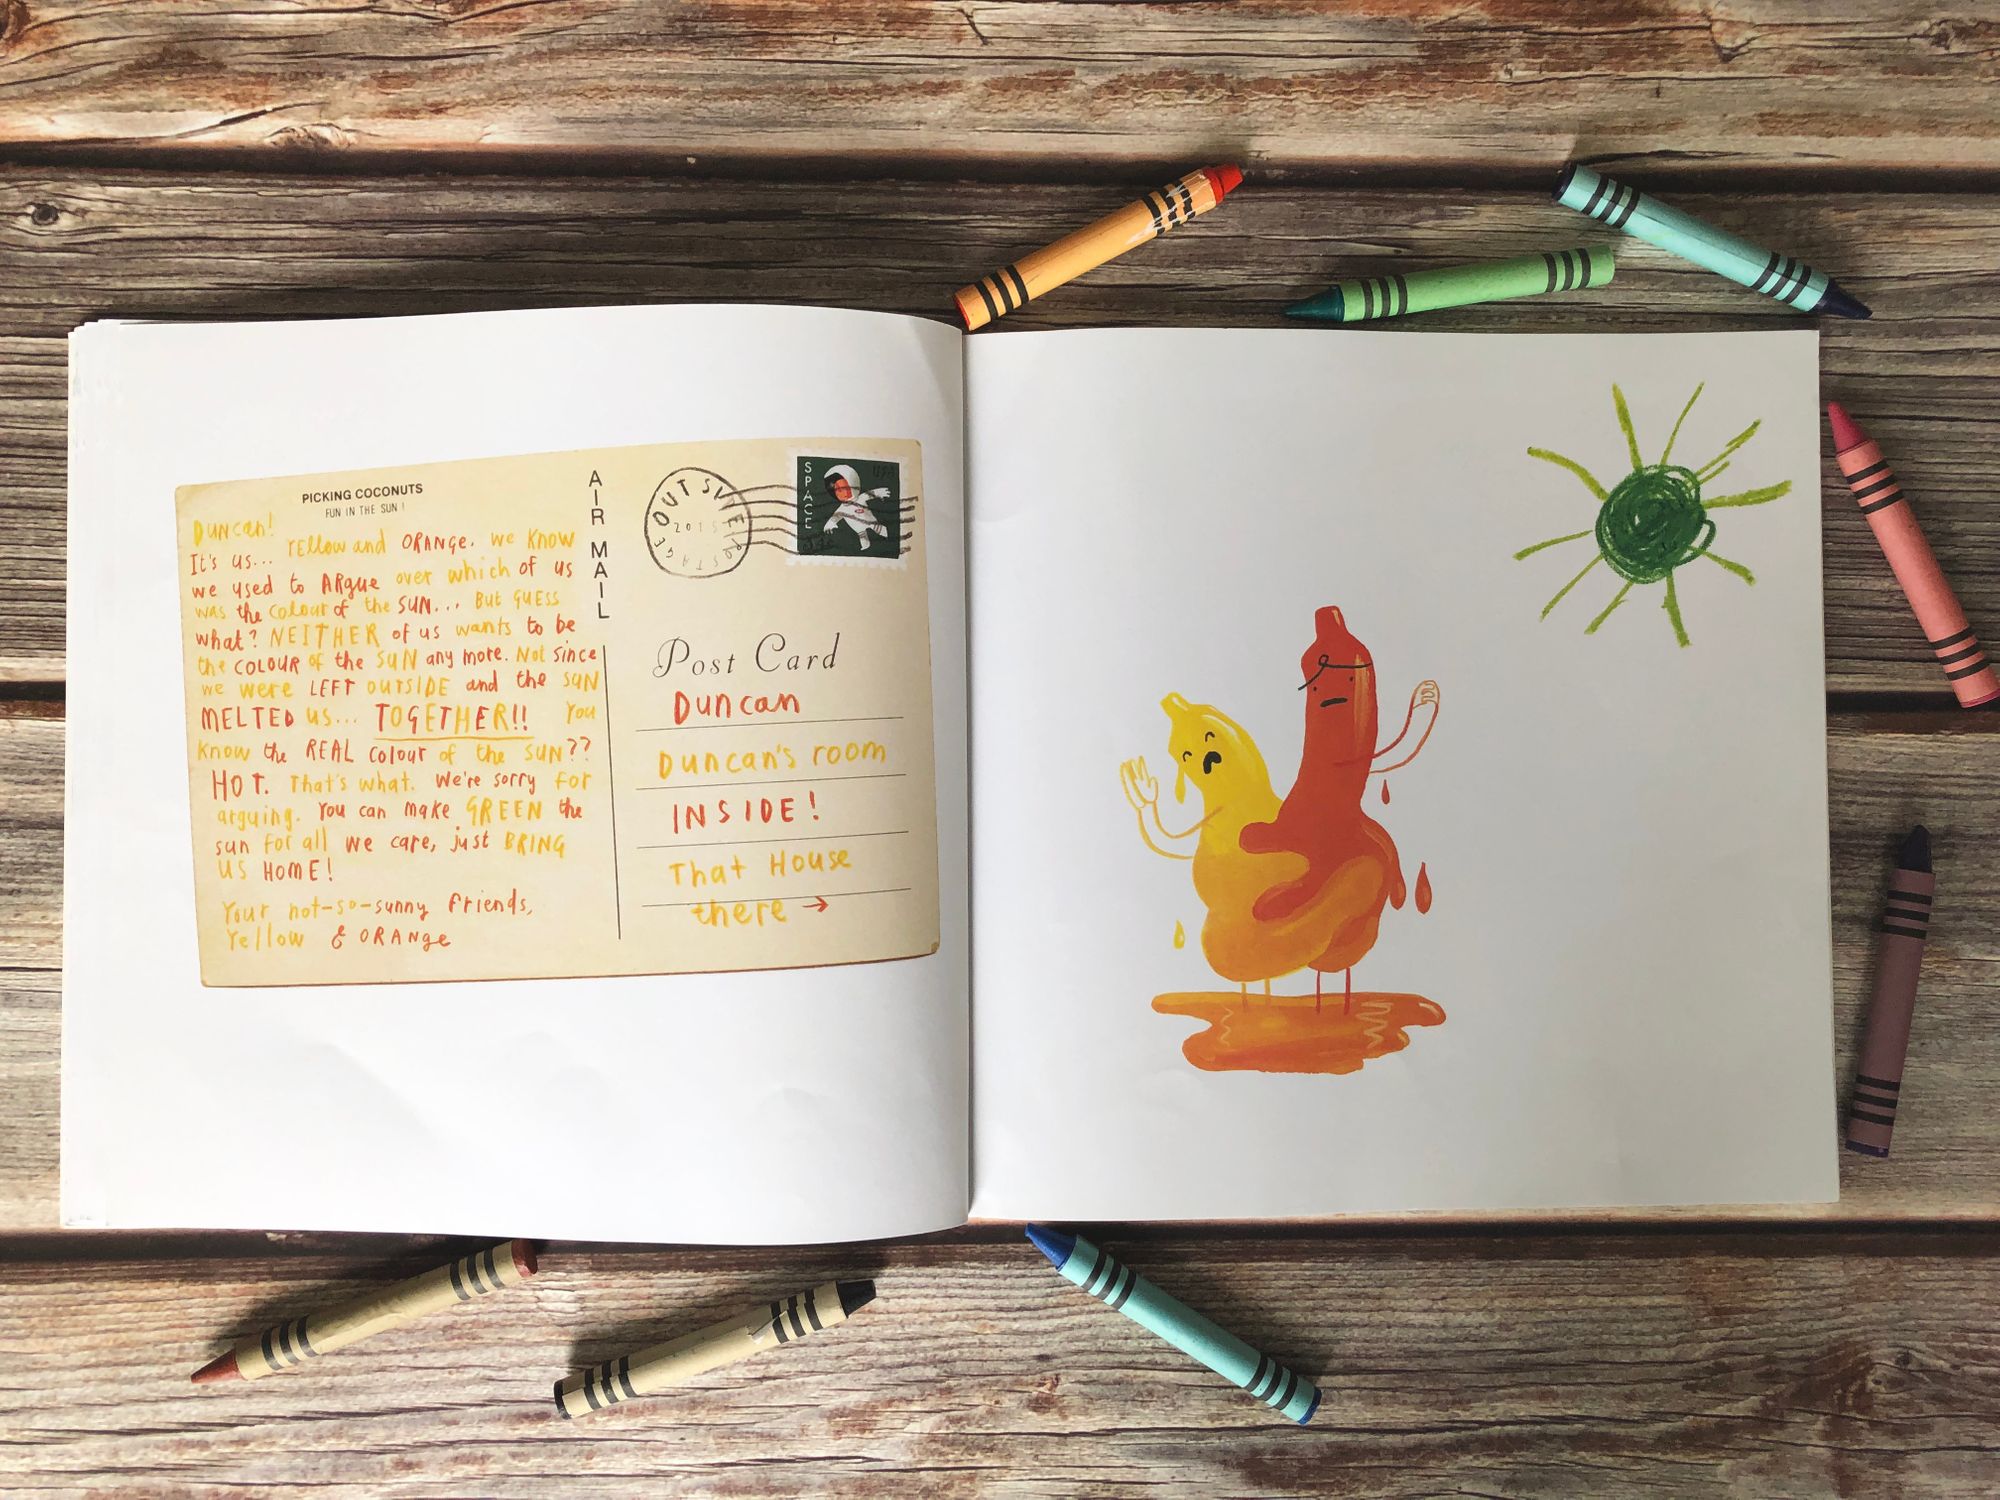 PICKING COCONUTS
FUN IN THE SUN!
Duncan!
It's us... Yellow and ORANGE. we know
we used to ARgue over which of us
was the colour of the SUN... But guess
what? NEITHER of us wants to be
the COLOUR of the SUN any more. Not since
we were LEFT OUTSIDE and the SUN
MELTED us... TOGETHER!! You
know the REAL colour of the SUN??
HOT. That's what. We're sorry for
arguing. You can make GREEN the
sun for all we care, just BRING
US HOME!
Your not-so-sunny friends,
Yellow & ORANge
AIR MAIL
OUTSIDE POSTAGE
2015
SPACE
USA
Post Card
Duncan
Duncan's room
INSIDE!
That House
there →